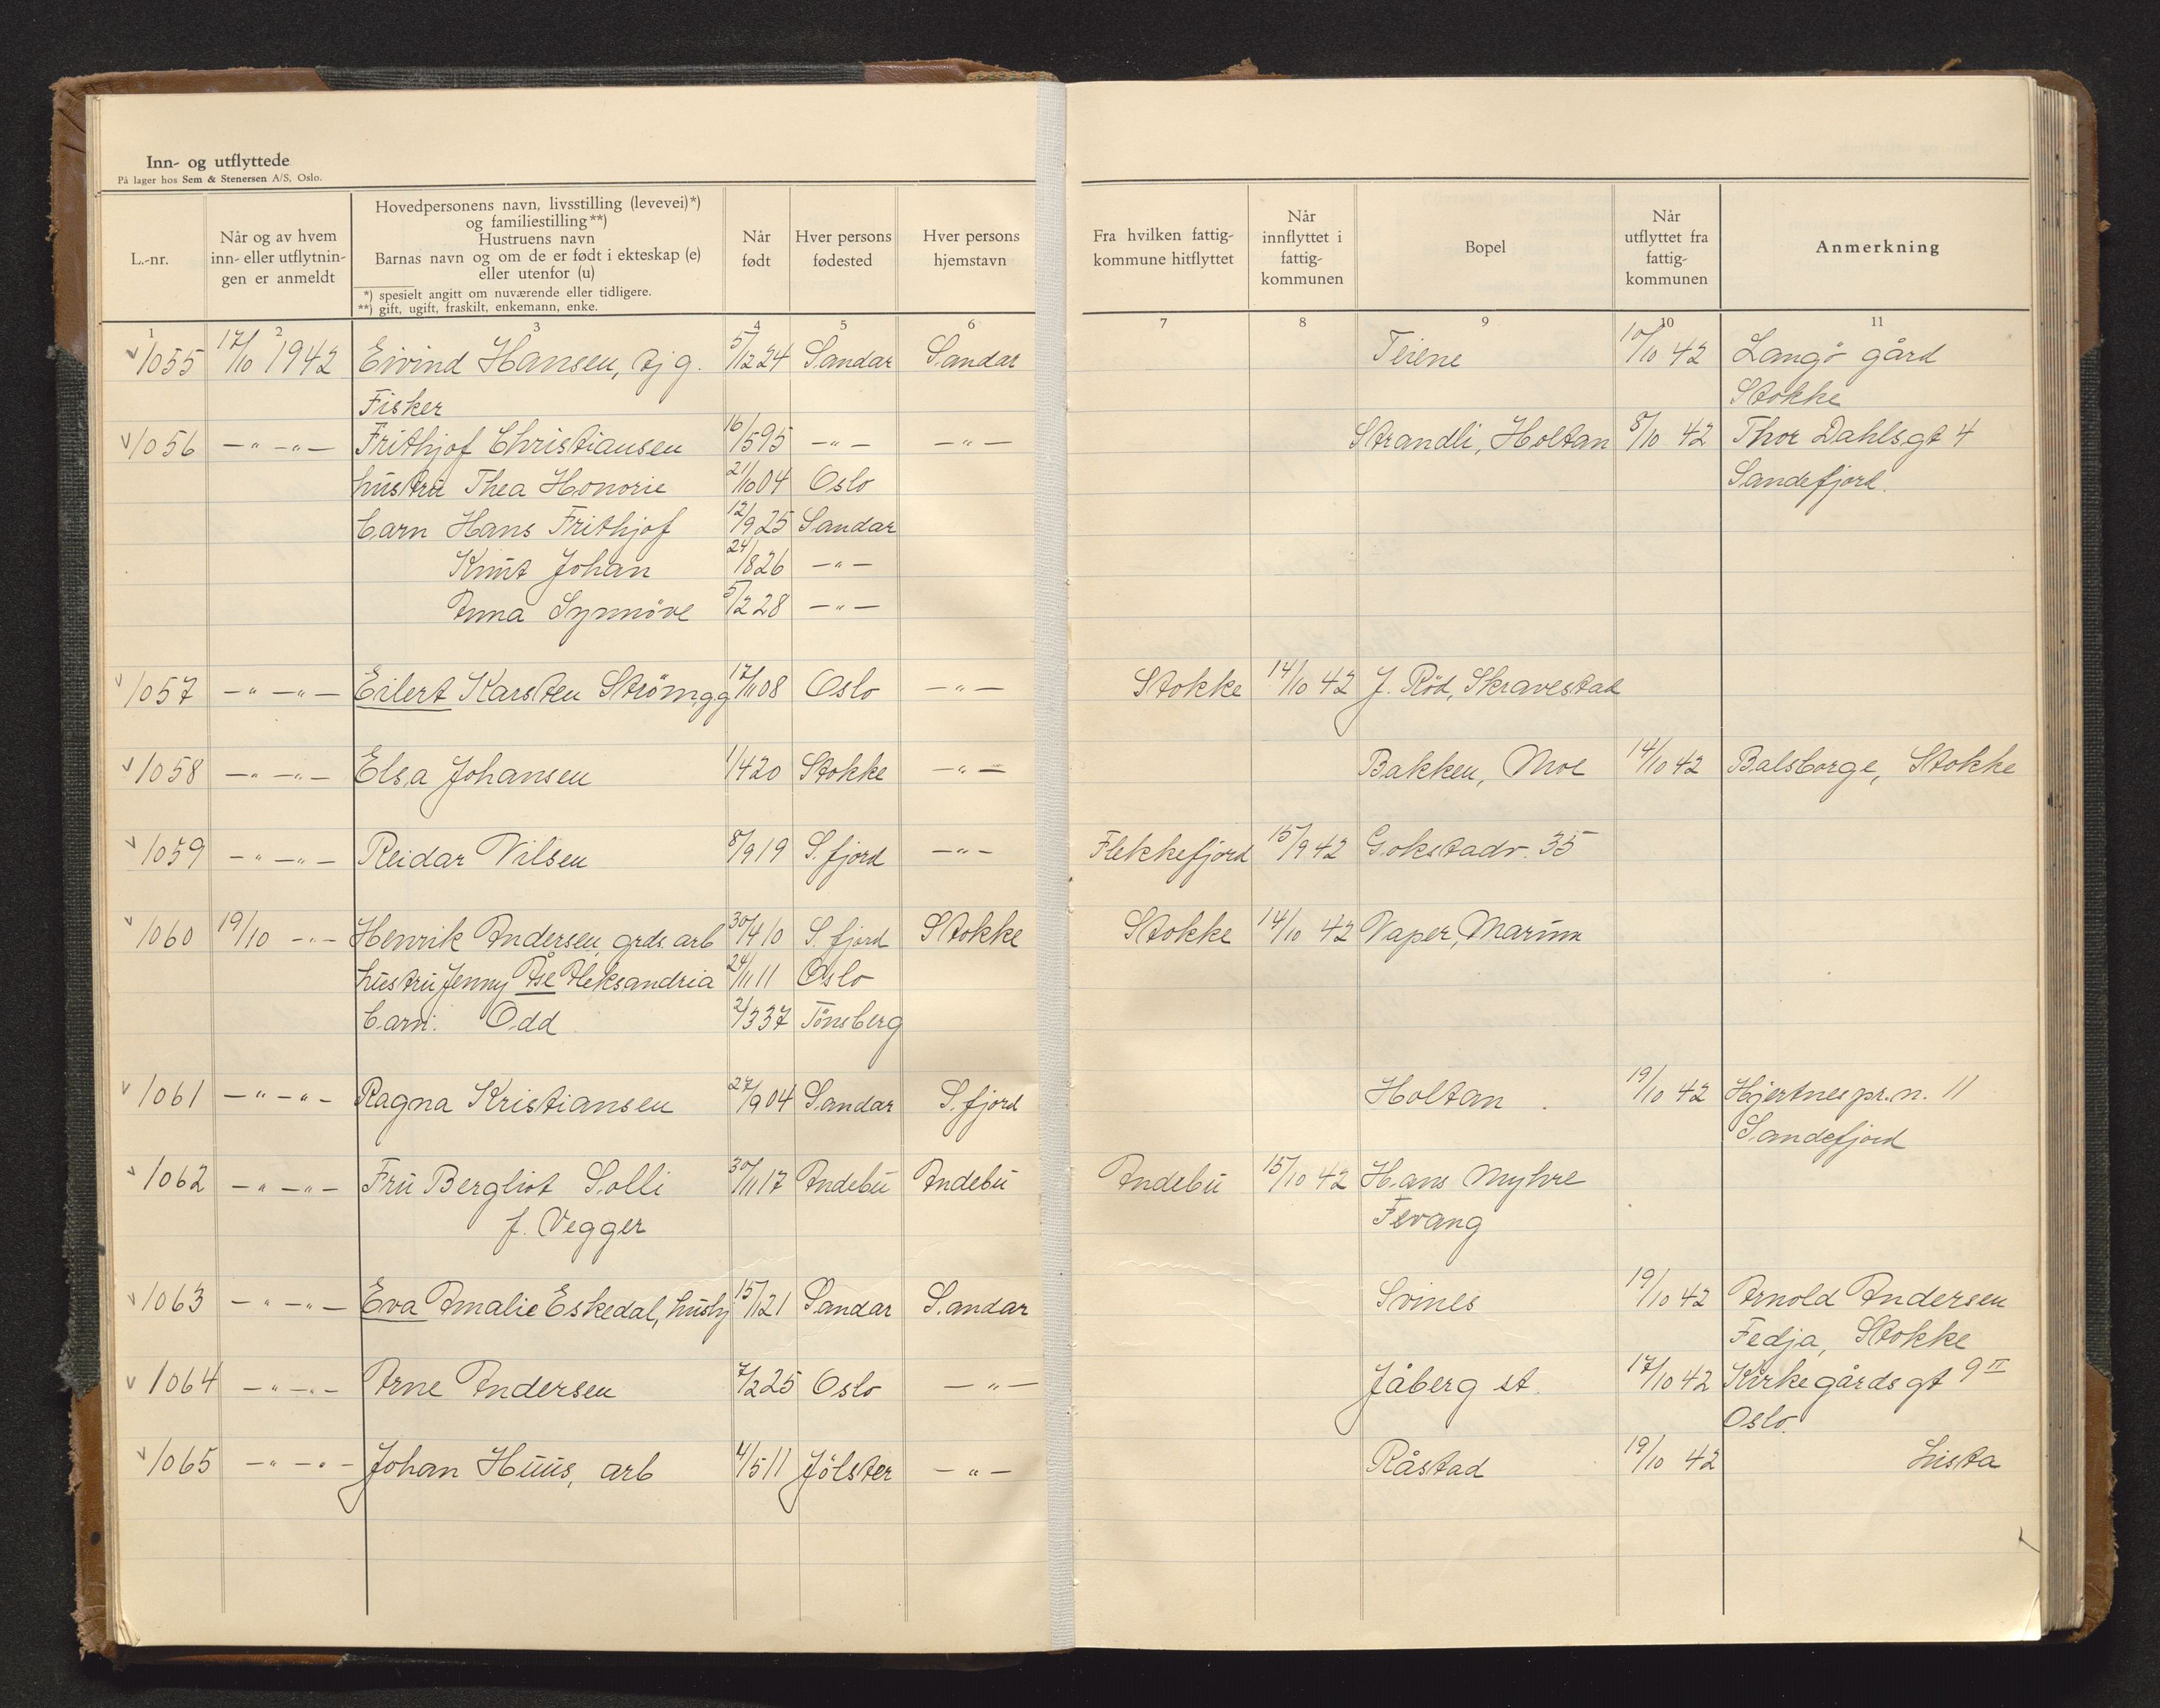 Inn- og utflyttede
På lager hos Sem & Stenersen A/S, Oslo.
L.-nr.
Når og av hvem
inn- eller utflytnin-
gen er anmeldt
Hovedpersonens navn, livsstilling (levevei)*)
og familiestilling**)
Hustruens navn
Barnas navn og om de er født i ekteskap (e)
eller utenfor (u)
*) spesielt angitt om nuværende eller tidligere.
**) gift, ugift, fraskilt, enkemann, enke.
Når
født
Hver persons
fødested
Hver persons
hjemstavn
Fra hvilken fattig-
kommune hitflyttet
Når
innflyttet i
fattig-
kommunen
Bopel
Når
utflyttet fra
fattig-
kommunen
Anmerkning
1 2 3 4 5 6 7 8 9 10 11
1055 17/10 1942 Eivind Hansen, tj g. 5/12 24 Sandar Sandar Teiene 10/10 42 Langö gård
Fisker Stokke
1056 —"— —"— Frithjof Christiansen 16/5 95 —"— —"— Strandli, Holtan 8/10 42 Thor Dahlsgt 4
hustru Thea Honorie 21/10 04 Oslo Sandefjord.
barn Hans Frithjof 12/9 25 Sandar
Knut Johan 24/8 26 —"—
Anna Synnöve 5/2 28 —"—
1057 —"— —"— Eilert Karsten Ström, gg 17/11 08 Oslo —"— Stokke 14/10 42 J. Röd, Skravestad
1058 —"— —"— Elsa Johansen 1/4 20 Stokke —"— Bakken, Moe 14/10 42 Balsborge, Stokke
1059 —"— —"— Reidar Nilsen 8/9 19 S. fjord —"— Flekkefjord 15/9 42 Gokstadv. 35
1060 19/10 —"— Henrik Andersen, grds. arb 30/4 10 S. fjord Stokke Stokke 14/10 42 Vaper, Marum
hustru Jenny Åse Aleksandria 24/11 11 Oslo
barn: Odd 2/3 37 Tönsberg
1061 —"— —"— Ragna Kristiansen 27/9 04 Sandar S. fjord Holtan 19/10 42 Hjertnespr.n. 11
Sandefjord
1062 —"— —"— Fru Bergliot Solli 30/11 17 Andebu Andebu Andebu 15/10 42 Hans Myhre
f. Vegger Fevang
1063 —"— —"— Eva Amalie Eskedal, hushj 15/1 21 Sandar Sandar Svines 19/10 42 Arnold Andersen
Fedja, Stokke
1064 —"— —"— Arne Andersen 7/2 25 Oslo —"— Jåberg st. 17/10 42 Kirkegårdsgt 9 II
Oslo.
1065 —"— —"— Johan Huus, arb 4/5 11 Jölster —"— Råstad 19/10 42 Lista